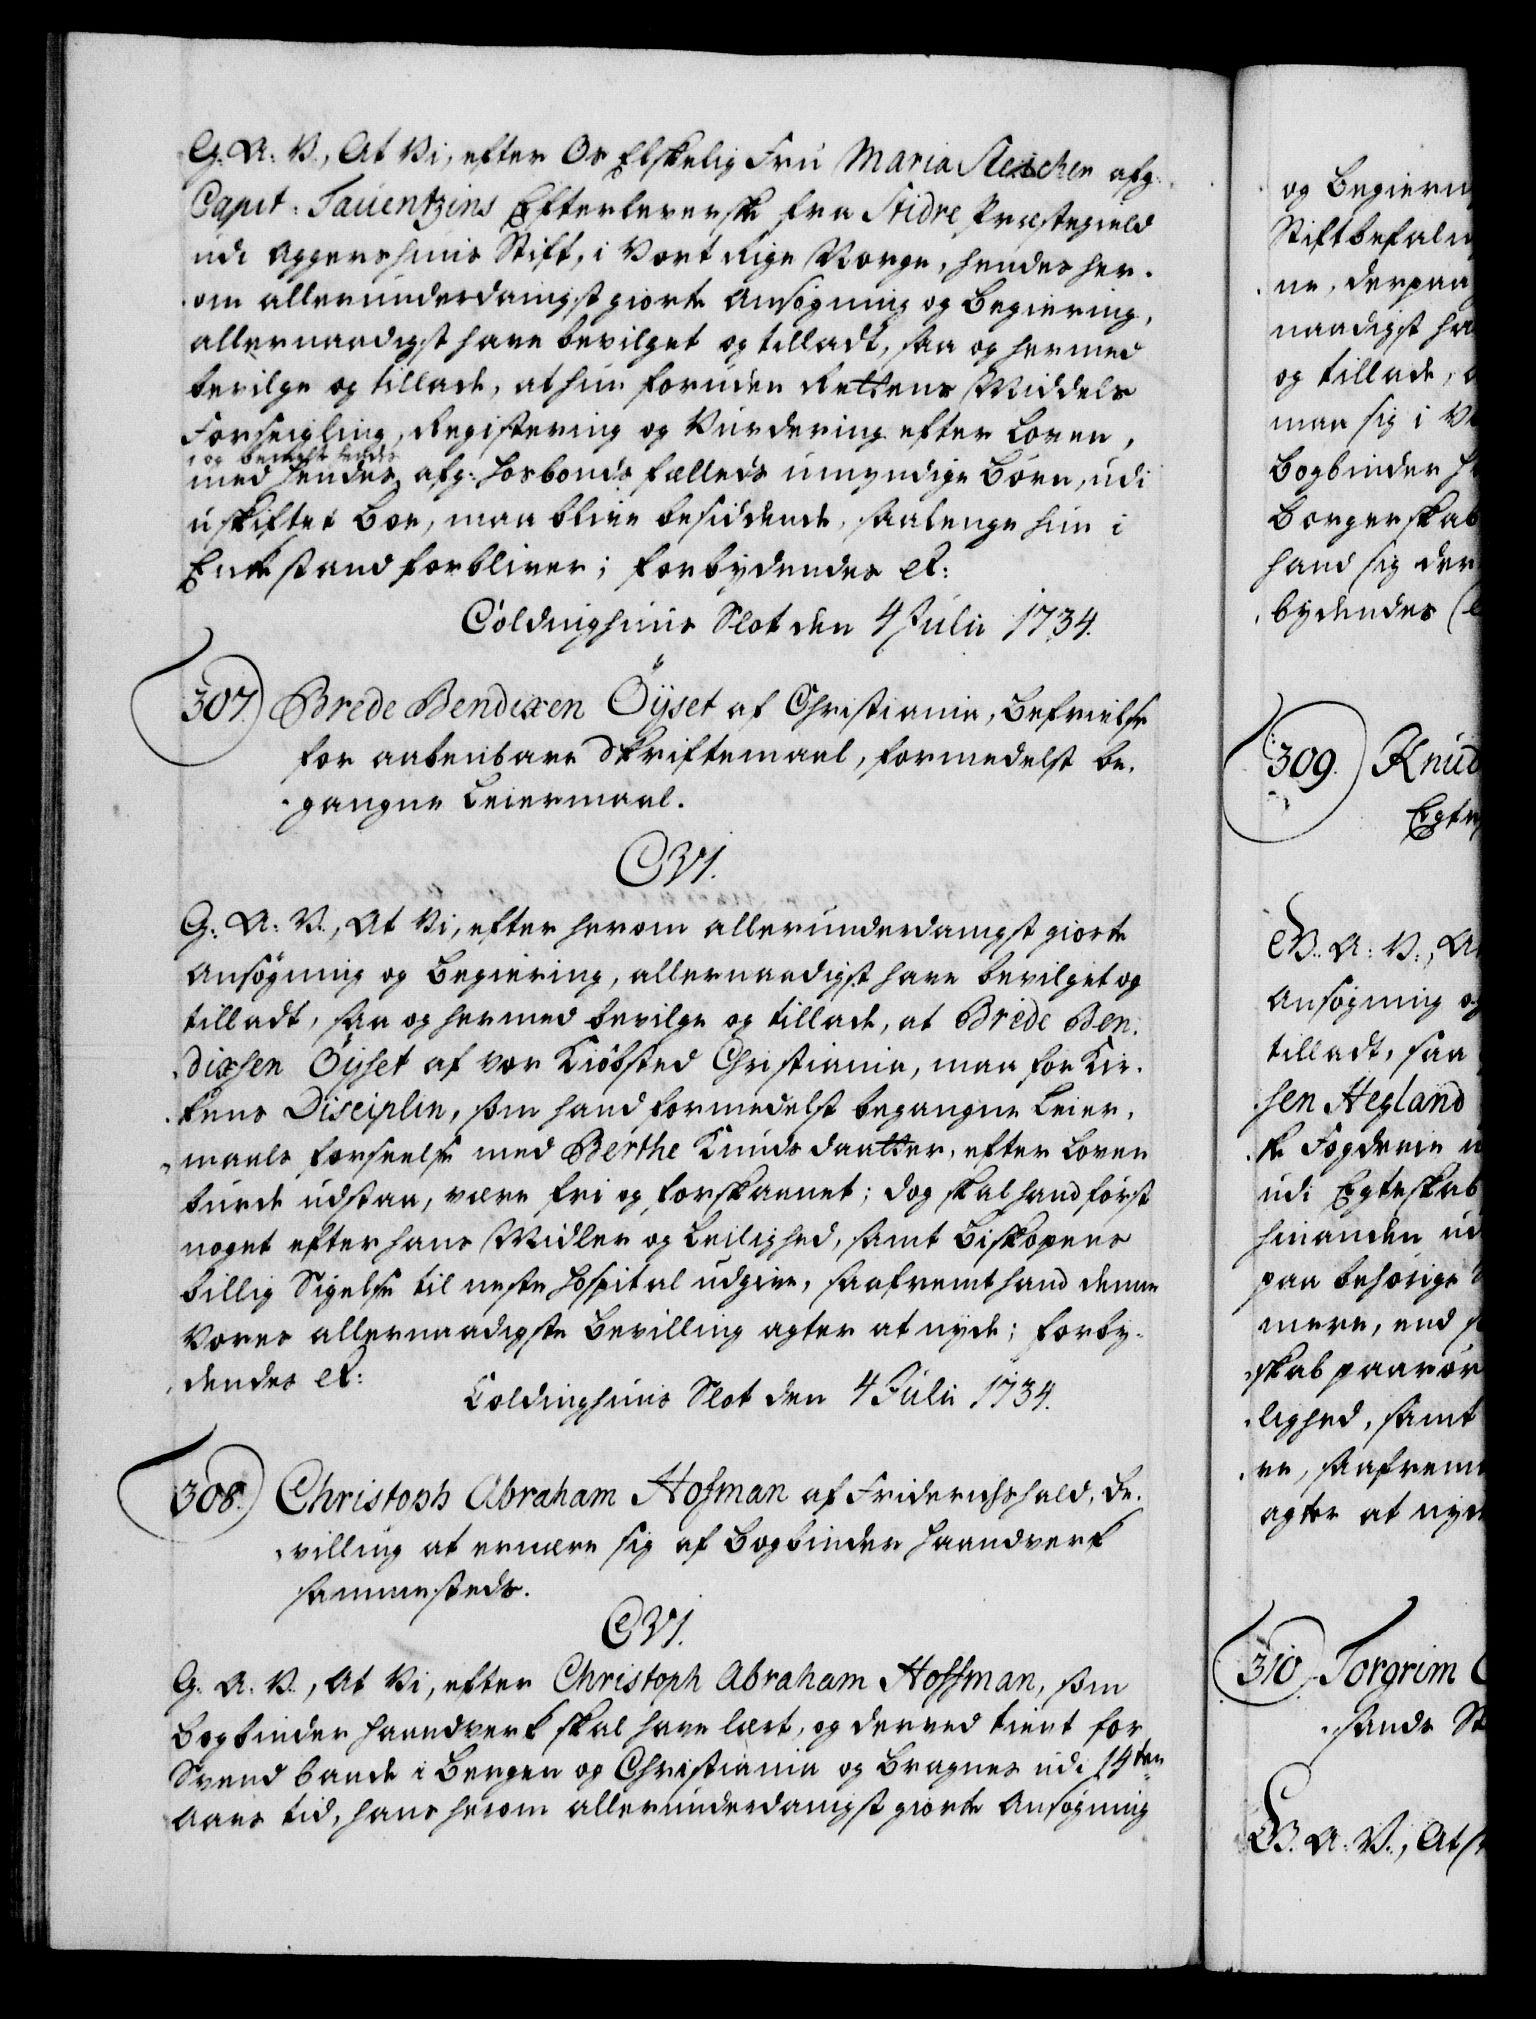 G: A: V., At Vi, efter Os Elskelig Fru Maria Steichen afg:
Capit: Tauentzins Efterleverske fra Slidre Præstegield
udi Aggershuus Stift, i Vort Rige Norge, hendes her-
om allerunderdanigst giorte Ansøgning og Begiering,
allernaadigst have bevilget og tilladt, saa og hermed
bevilge og tillade, at hun foruden Rettens Middels
Forseigling, Registering og Vurdering efter Loven,
med hendes afg: Hosbonds fælleds umyndige Børn, udi
uskiftet Boe, maa blive besiddende, saalenge hun i
Enkestand forbliver; forbydendes etc:
Coldinghuus Slot den 4 Julii 1734.
307. Brede Bendixen Öyset af Christiania, Befrielse
for aabenbare Skriftemaal, formedelst be-
gangne Leiermaal.
C VI.
G: A: V., At Vi, efter herom allerunderdanigst giorte
Ansøgning og Begiering, allernaadigst have bevilget og
tilladt, saa og hermed bevilge og tillade, at Brede Ben-
dixsen Öyset af vor Kiøbsted Christiania, maa for Kir-
kens Disciplin, som hand formedelst begangne Leier-
maals forseelse med Berthe Knudsdaatter, efter Loven
burde udstaa, være fri og forskaanet; dog skal hand først
noget efter hans Midler og Leilighed, samt Biskopens
billig Sigelse til neste Hospital udgive, saafremt hand denne
Vores allernaadigste Bevilling agter at nyde; forby-
dendes etc:
Coldinghuus Slot den 4 Julii 1734.
308. Christoph Abraham Hofman af Friderichshald, Be-
villing at ernære sig af Bogbinder Haandverk
sammesteds.
C VI.
G. A. V., At Vi, efter Christoph Abraham Hoffman, som
Bogbinder Haandverk skal have lært, og derved tient for
Svend baade i Bergen og Christiania og Bragnes udi 14ten
Aars tid, hans herom allerunderdanigst giorte Ansøgning
og Begiern
Stiftbefaln
ne, derpaa
naadigst ha
og tillade, a
maa sig i V
Bogbinder H
Borgerskab
hand sig der
bydendes
309. Knud
Egte
G. A. V., A
Ansøgning og
tilladt, saa
sen Hegland
k Fogderie u
udi Egteskab
hinanden ud
paa behørige
mere, end s
skab paarør
lighed, samt
ve, saafremt
agter at nyde
310. Torgrim
sands St
G. A. V., At